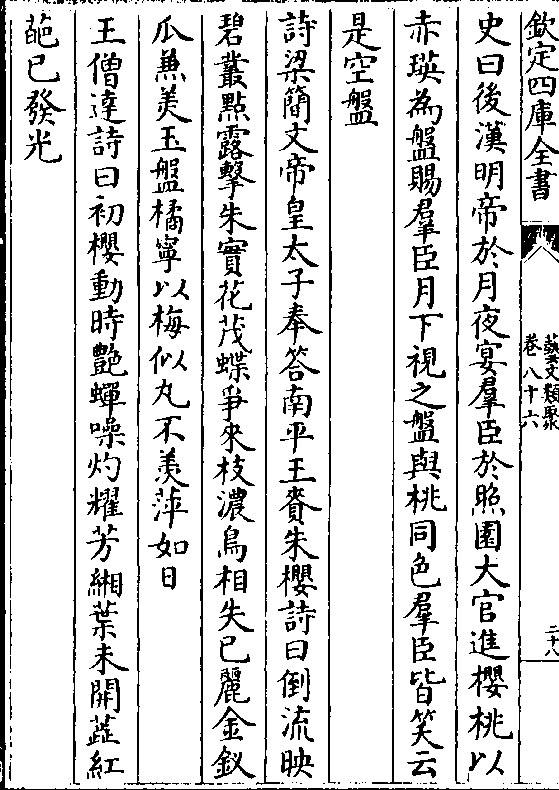 欽定四庫全書
藝文類聚
卷八十六
二十八
史曰後漢明帝於月夜宴羣臣於照園大官進櫻桃以
赤瑛為盤賜羣臣月下視之盤與桃同色羣臣皆笑云
是空盤
詩梁簡文帝皇太子奉答南平王賚朱櫻詩曰倒流映
碧叢點露擎朱實花茂蝶爭來枝濃鳥相失已麗金釵
瓜兼美玉盤橘寧以梅似丸不羨萍如日
王僧達詩曰初櫻動時艷蟬噪灼耀芳緗葉未開蘂紅
葩已發光